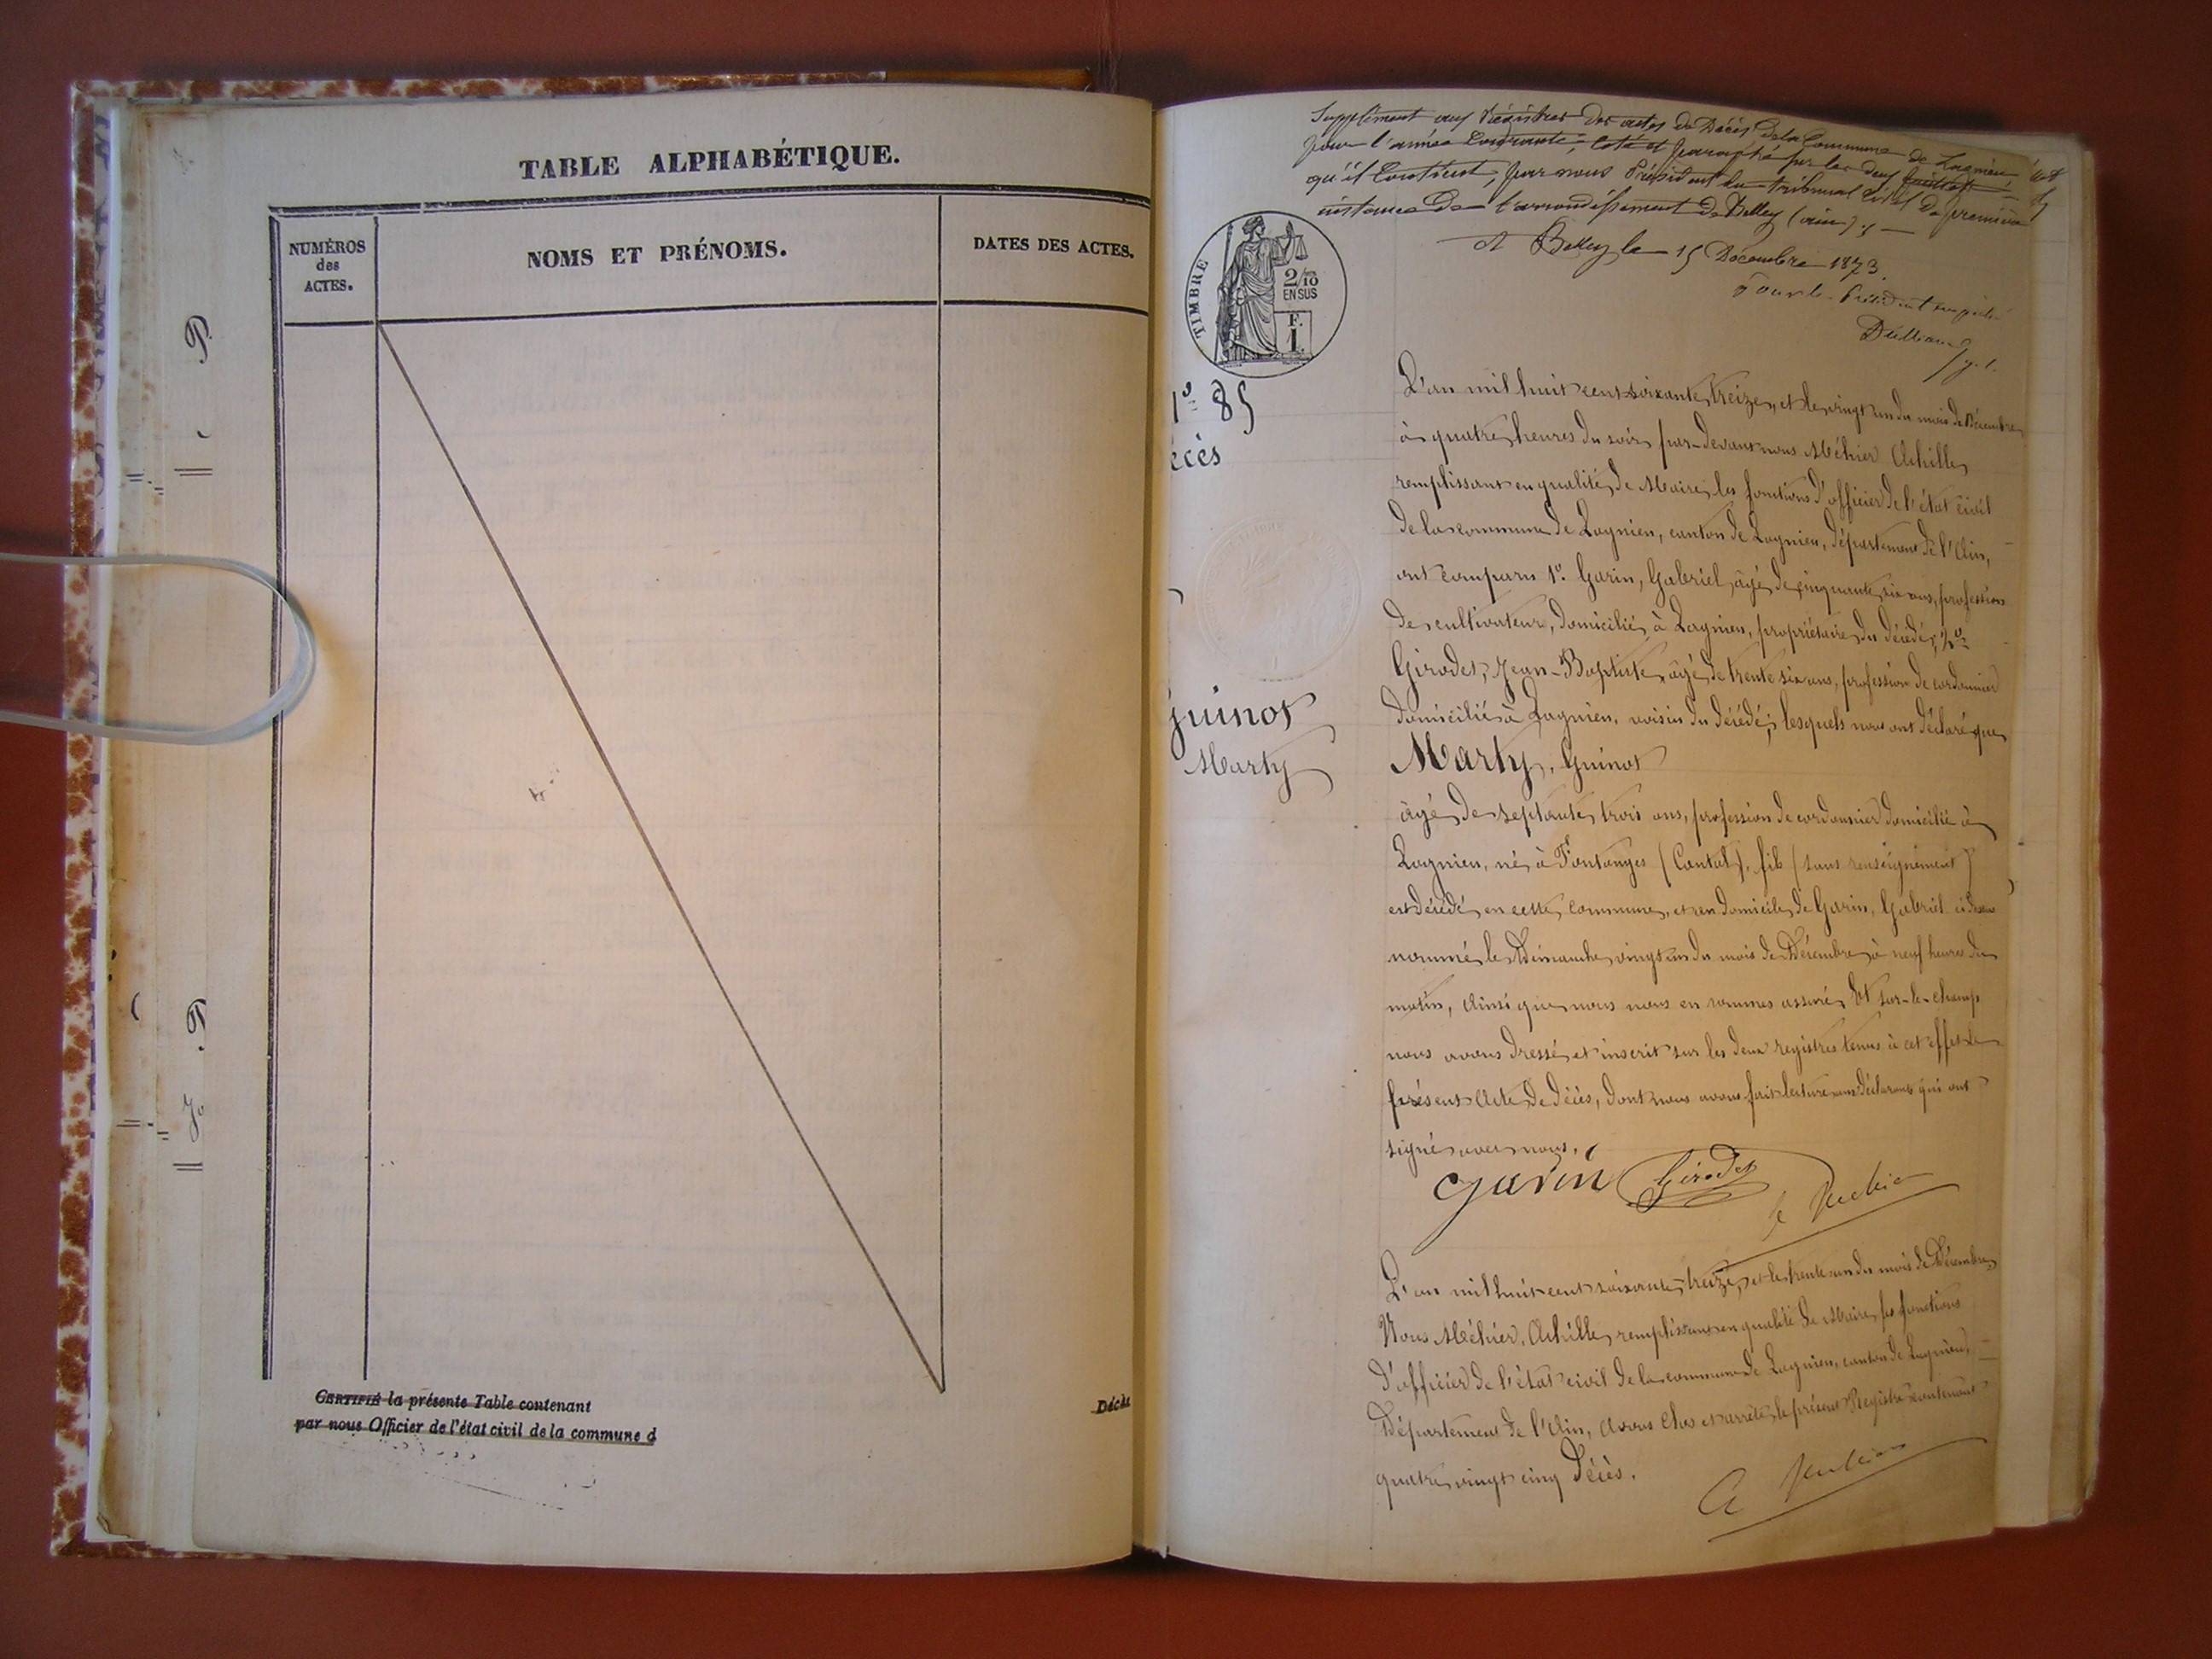 TABLE ALPHABÉTIQUE.
NUMÉROS
des
ACTES.
NOMS ET PRÉNOMS.
DATES DES ACTES.
CERTIFIÉ la présente Table contenant
par nous Officier de l'état civil de la commune d
Décès
Supplément aux Régistres des actes de Décès de la Commune de Lagnieu
pour l'année Courante, Coté et paraphé par les deux
qu'il Contient, par nous Président du tribunal Civil de première
instance de l'arrondissement de Belley (ain) ;
A Belley le 15 Décembre 1873.
Pour le Président empêché
TIMBRE
2/10
EN SUS
F.
1.
85
écès
Guinot
Marty
L'an mil huit cent soixante treize, et le vingt un du mois de Décembre
à quatre heures du soir, par-devant nous Méhier Achille
remplissant en qualité de Maire, les fonctions d'officier de l'état civil
de la commune de Lagnieu, canton de Lagnieu, département de l'Ain,
ont comparu 1º. Garin, Gabriel, âgé de cinquante six ans, profession
de cultivateur, domicilié à Lagnieu, propriétaire du décédé; 2º
Girodet, Jean-Baptiste, âgé de trente six ans, profession de cordonnier
domicilié à Lagnieu, voisin du décédé; lesquels nous ont déclaré que
Marty, Guinot
âgé de septante trois ans, profession de cordonnier domicilié à
Lagnieu, né à Fontanges (Cantal), fils (sans renseignement)
est décédé en cette commune, et en domicile de Garin, Gabriel ci-dessus
nommé le Dimanche vingt un du mois de Décembre à neuf heures du
matin, Ainsi que nous nous en sommes assuré, Et sur-le-champ
nous avons dressé et inscrit sur les deux registres tenus à cet effet le
présent Acte de décès, dont nous avons fait lecture aux déclarants qui ont
signé avec nous.
Garin Girodet Mehier
L'an mil huit cent soixante treize, et le trente un du mois de Décembre
Nous Méhier, Achille, remplissant en qualité de Maire, les fonctions
d'officier de l'état civil de la commune de Lagnieu, canton de Lagnieu,
Département de l'Ain, Avons Clos et arrêté, le présent Registre contenant
quatre vingt cinq Décès.
A Mehier